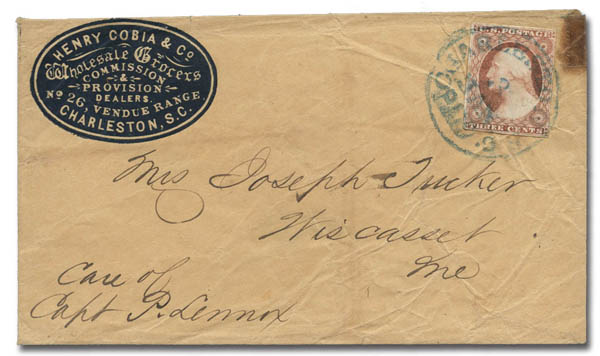 HENRY COBIA & CO
Wholesale Grocers
COMMISSION
&
PROVISION
DEALERS.
No 26, VENDUE RANGE
CHARLESTON, S.C.
U.S. POSTAGE
THREE CENTS
Mrs Joseph Tucker
Wiscasset
Me
Care of
Capt P. Lennox